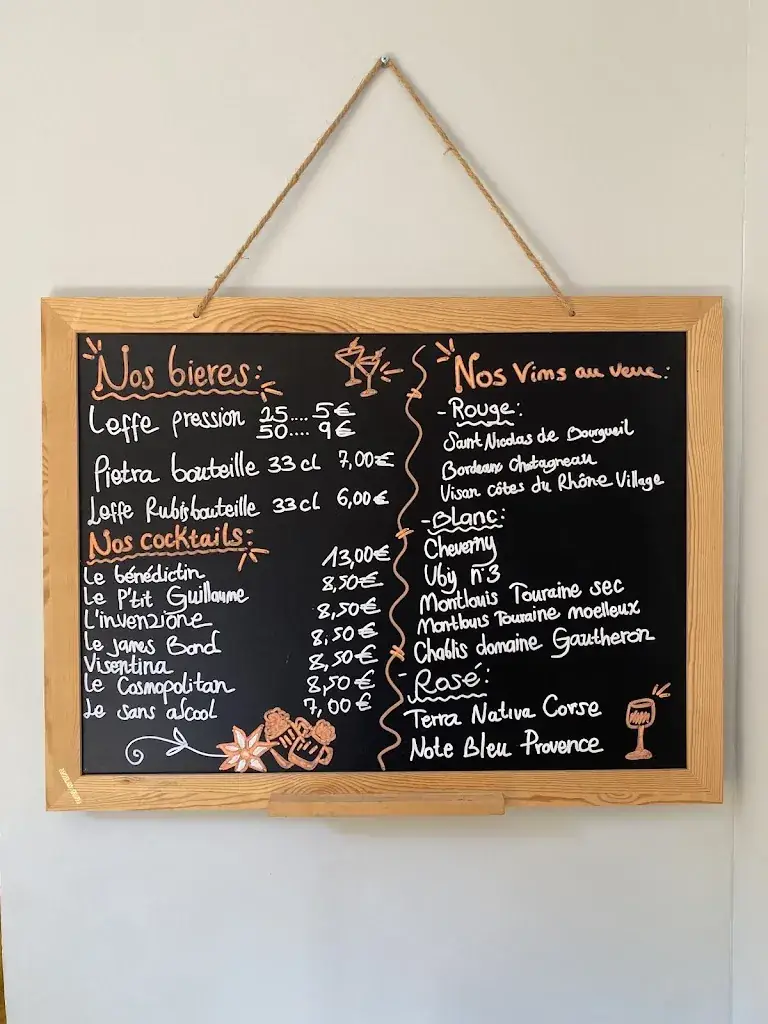 Nos bieres:
Leffe pression 25.... 5€
50.... 9€
Pietra bouteille 33 cl 7,00€
Leffe Rubis bouteille 33 cl 6,00€
Nos cocktails:
Le bénédictin 13,00€
Le P'tit Guillaume 8,50€
L'invenzione 8,50€
Le James Bond 8,50€
Visentina 8,50€
Le Cosmopolitan 8,50€
Le sans alcool 7,00€
Nos Vins au verre:
- Rouge:
Saint Nicolas de Bourgueil
Bordeaux Chatagneau
Visan côtes du Rhône Village
- Blanc:
Cheverny
Uby n°3
Montlouis Touraine sec
Montlouis Touraine moelleux
Chablis domaine Gautheron
- Rosé:
Terra Nativa Corse
Note Bleu Provence